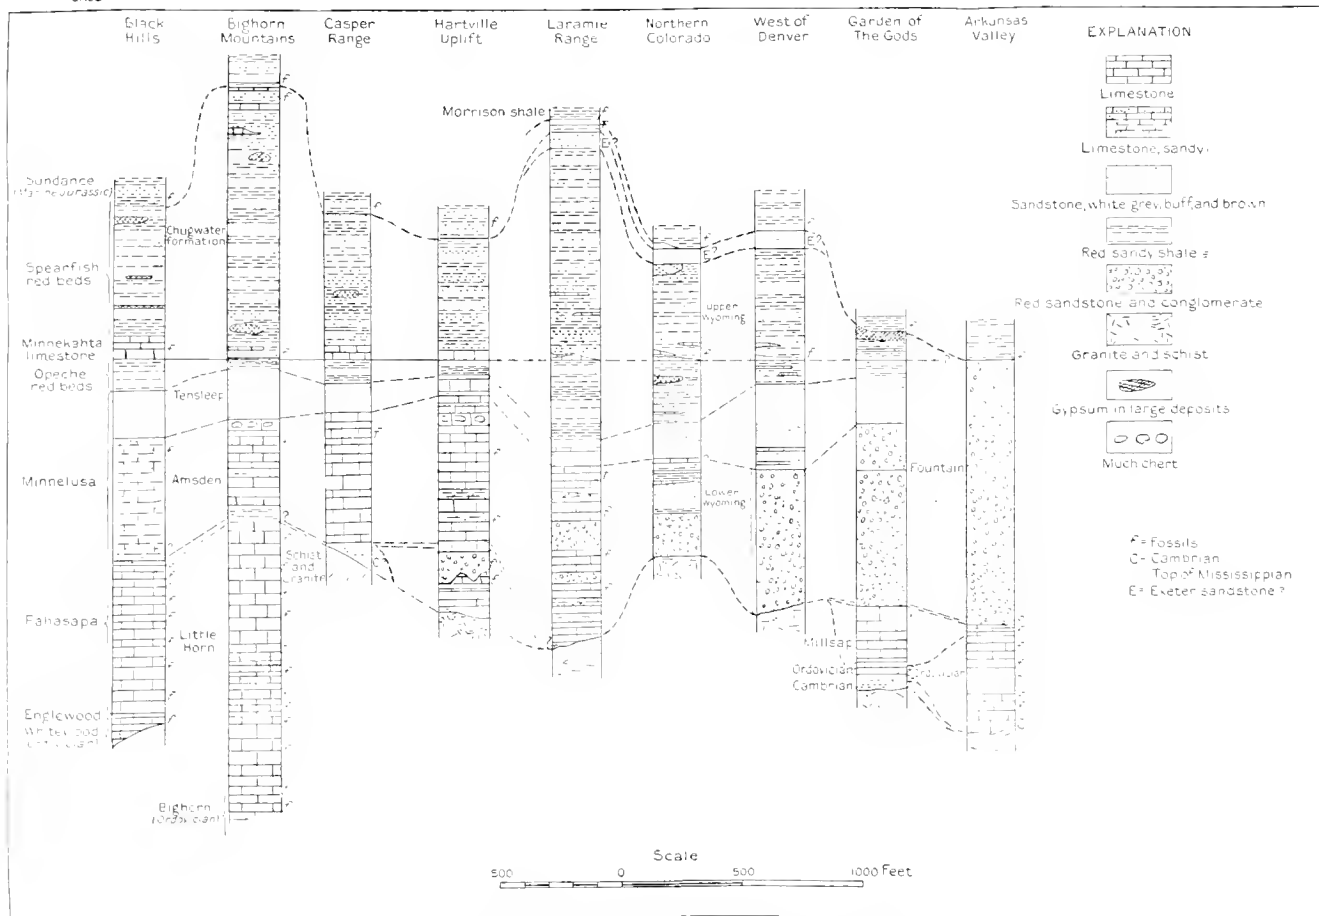 Black Hills
Bighorn Mountains
Casper Range
Hartville Uplift
Laramie Range
Northern Colorado
West of Denver
Garden of The Gods
Arkansas Valley
EXPLANATION
Limestone
Limestone, sandy
Sandstone, white grey, buff, and brown
Red sandy shale
Red sandstone and conglomerate
Granite and schist
Gypsum in large deposits
Much chert
f = Fossils
C - Cambrian
Top of Mississippian
E = Exeter sandstone ?
Sundance
(Marine Jurassic)
Spearfish
red beds
Minnekahta
limestone
Opeche
red beds
Minnelusa
Pahasapa
Englewood
Whitewood
(Ordovician)
Chugwater
formation
Tensleep
Amsden
Little
Horn
Bighorn
(Ordovician)
Schist
and
Granite
C
Morrison shale
E?
E?
E?
Upper
Wyoming
Lower
Wyoming
Fountain
Millsap
Ordovician
Cambrian
Ordovician
C
Scale
500 0 500 1000 Feet